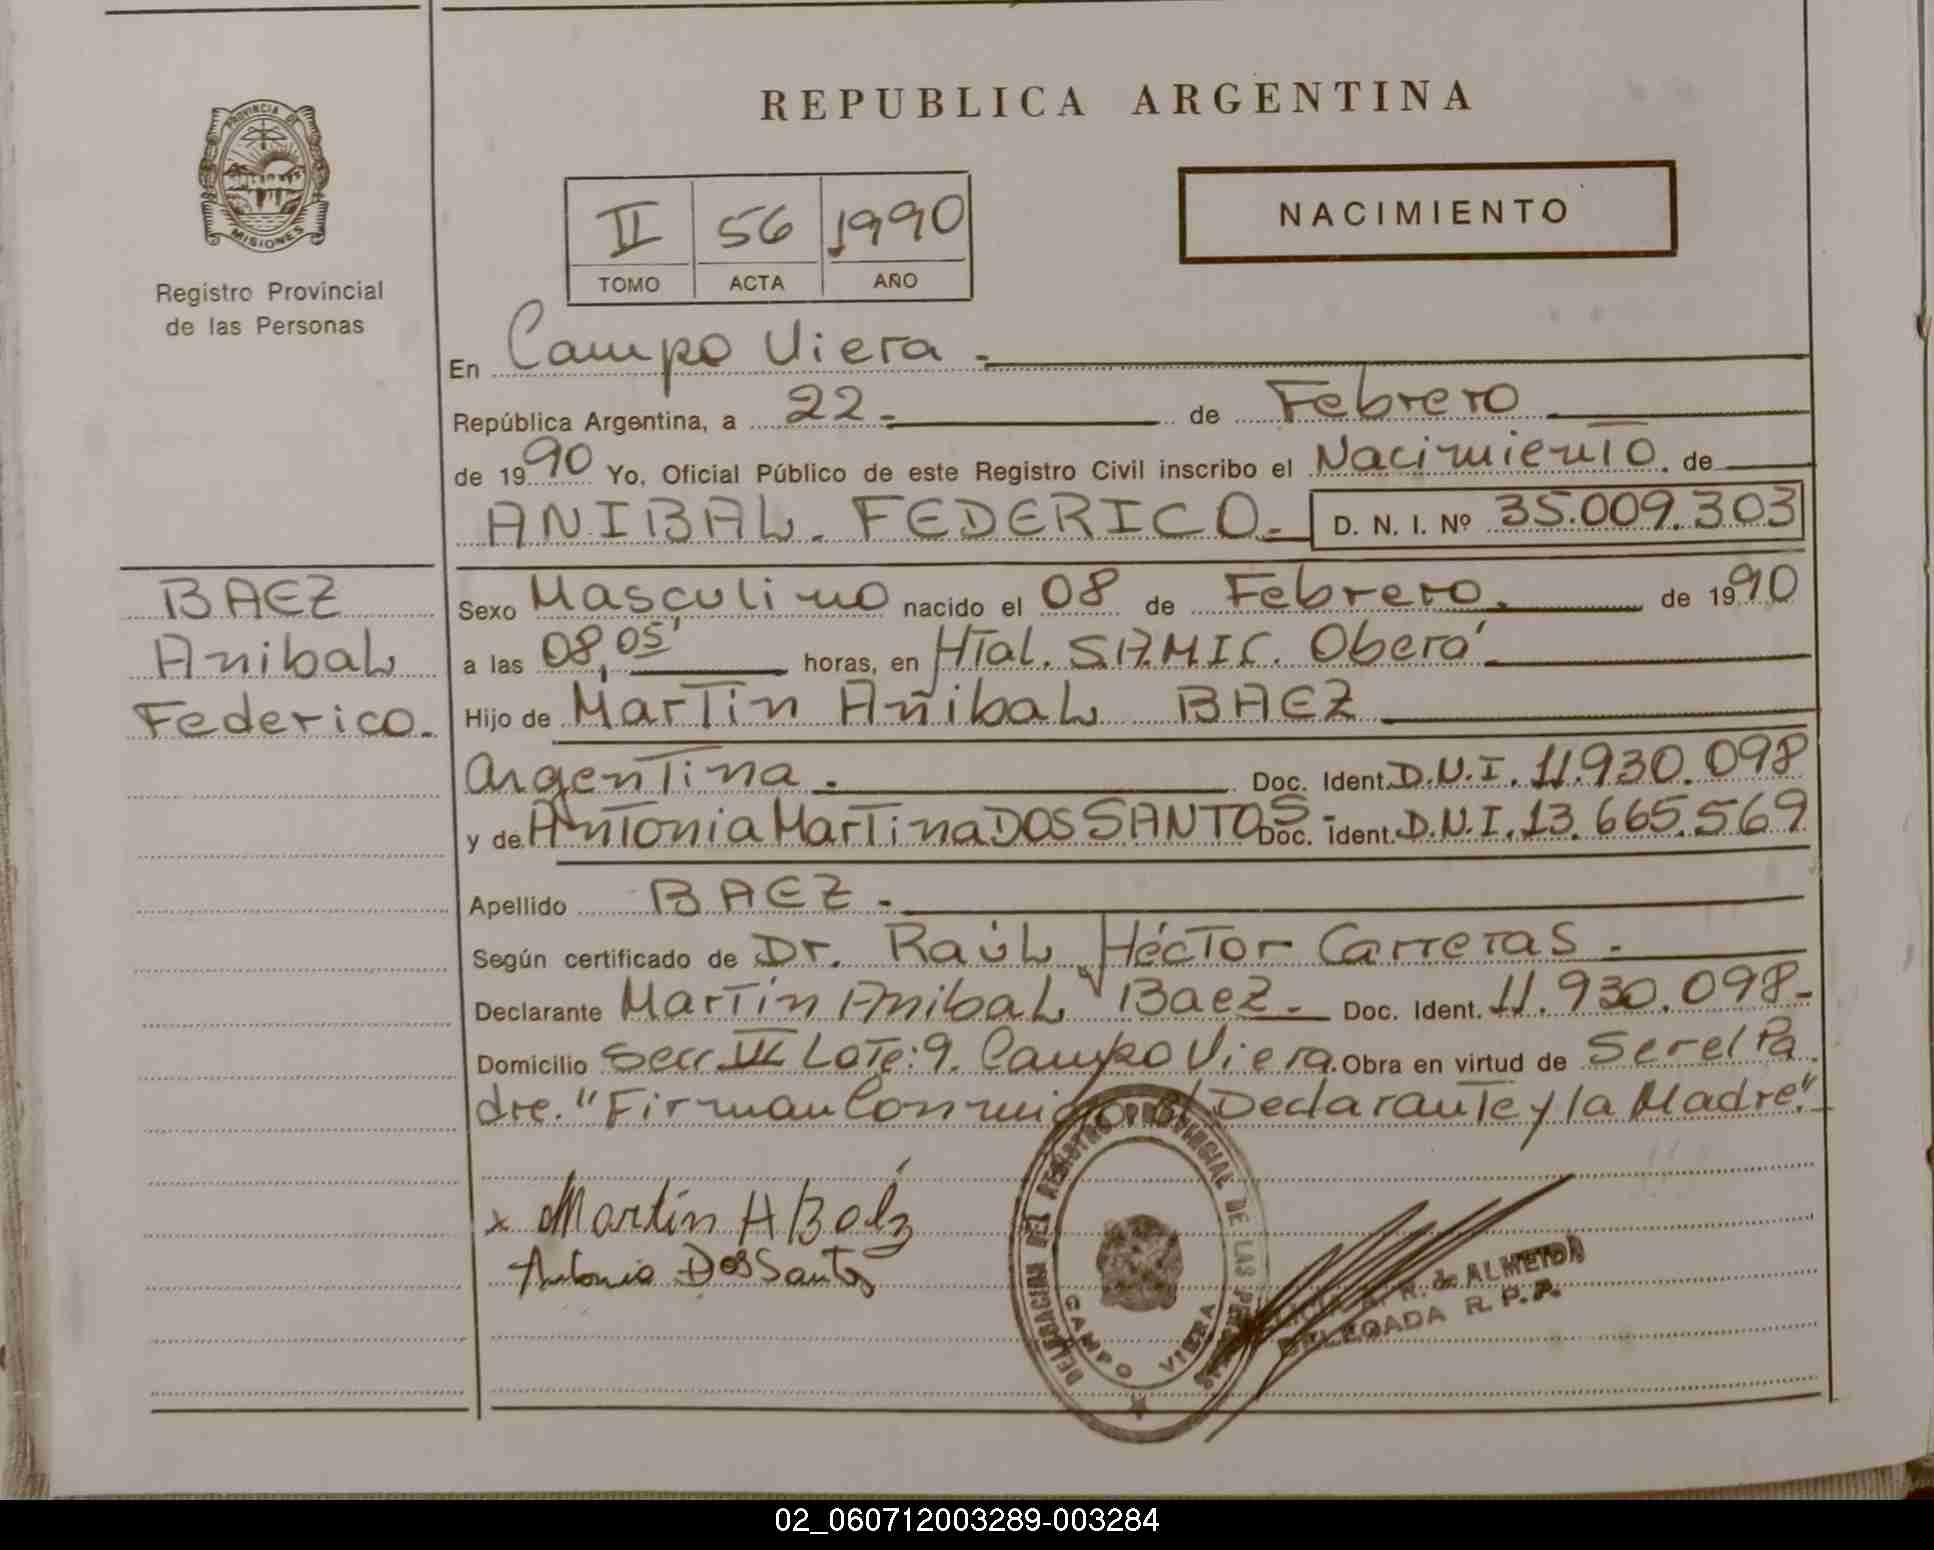 REPUBLICA ARGENTINA
PROVINCIA DE
MISIONES
Registro Provincial
de las Personas
II 56 1990
TOMO ACTA AÑO
NACIMIENTO
En Campo Viera.
República Argentina, a 22 de Febrero
de 1990 Yo, Oficial Público de este Registro Civil inscribo el Nacimiento de
ANIBAL FEDERICO.- D. N. I. Nº 35.009.303
BAEZ
Anibal
Federico.
Sexo Masculino nacido el 08 de Febrero. de 1990
a las 08,05' horas, en Htal. SAMIC. Oberá
Hijo de Martin Añibal BAEZ
Argentina. Doc. Ident. D.N.I. 11.930.098
y de Antonia Martina DOS SANTOS.- Doc. Ident. D.N.I. 13.665.569
Apellido BAEZ.
Según certificado de Dr. Raúl Héctor Carreras.
Declarante Martín Anibal Baez. Doc. Ident. 11.930.098.-
Domicilio Secc. IV Lote: 9. Campo Viera. Obra en virtud de Ser el Pa
dre. "Firman Conmigo el Declarante y la Madre."
x Martín A Baéz
Antonia Dos Santos
DELEGACION DEL REGISTRO PROVINCIAL DE LAS PERSONAS
CAMPO VIERA
R. de ALMEIDA
DELEGADA R. P. P.
02_060712003289-003284